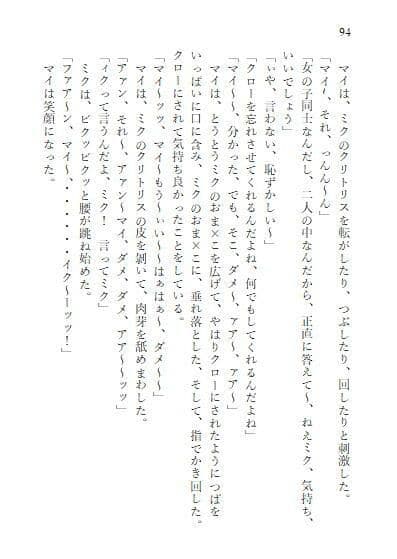 94
マイは、ミクのクリトリスを転がしたり、つぶしたり、回したりと刺激した。
「マイ〜、それ、っんん〜ん」
「女の子同士なんだし、二人の中なんだから、正直に答えて〜、ねえミク、気持ち、
いいでしょう」
「いや、言わない、恥ずかしい〜」
「クローを忘れさせてくれるんだよね、何でもしてくれるんだよね」
「マイ〜〜、分かった、でも、そこ、ダメ〜、アア〜、アア〜」
マイは、とうとうミクのおま×こを広げて、やはりクローにされたようにつばを
いっぱいに口に含み、ミクのおま×こに、垂れ落とした、そして、指でかき回した。
クローにされて気持ち良かったことをしている。
「マイ〜ッッ、マイ〜もう〜ぃい〜〜はぁはぁ〜、ダメ〜〜」
マイは、ミクのクリトリスの皮を剝いて、肉芽を舐めまわした。
「アァン、それ〜、アァン〜マイ、ダメ、ダメ、アア〜〜ッッ」
「ィクって言うんだよ、ミク！　言ってミク」
ミクは、ビクッビクッと腰が跳ね始めた。
「ファア〜ン、マイ〜、・・・・・・イク〜ーッッ！」
マイは笑顔になった。